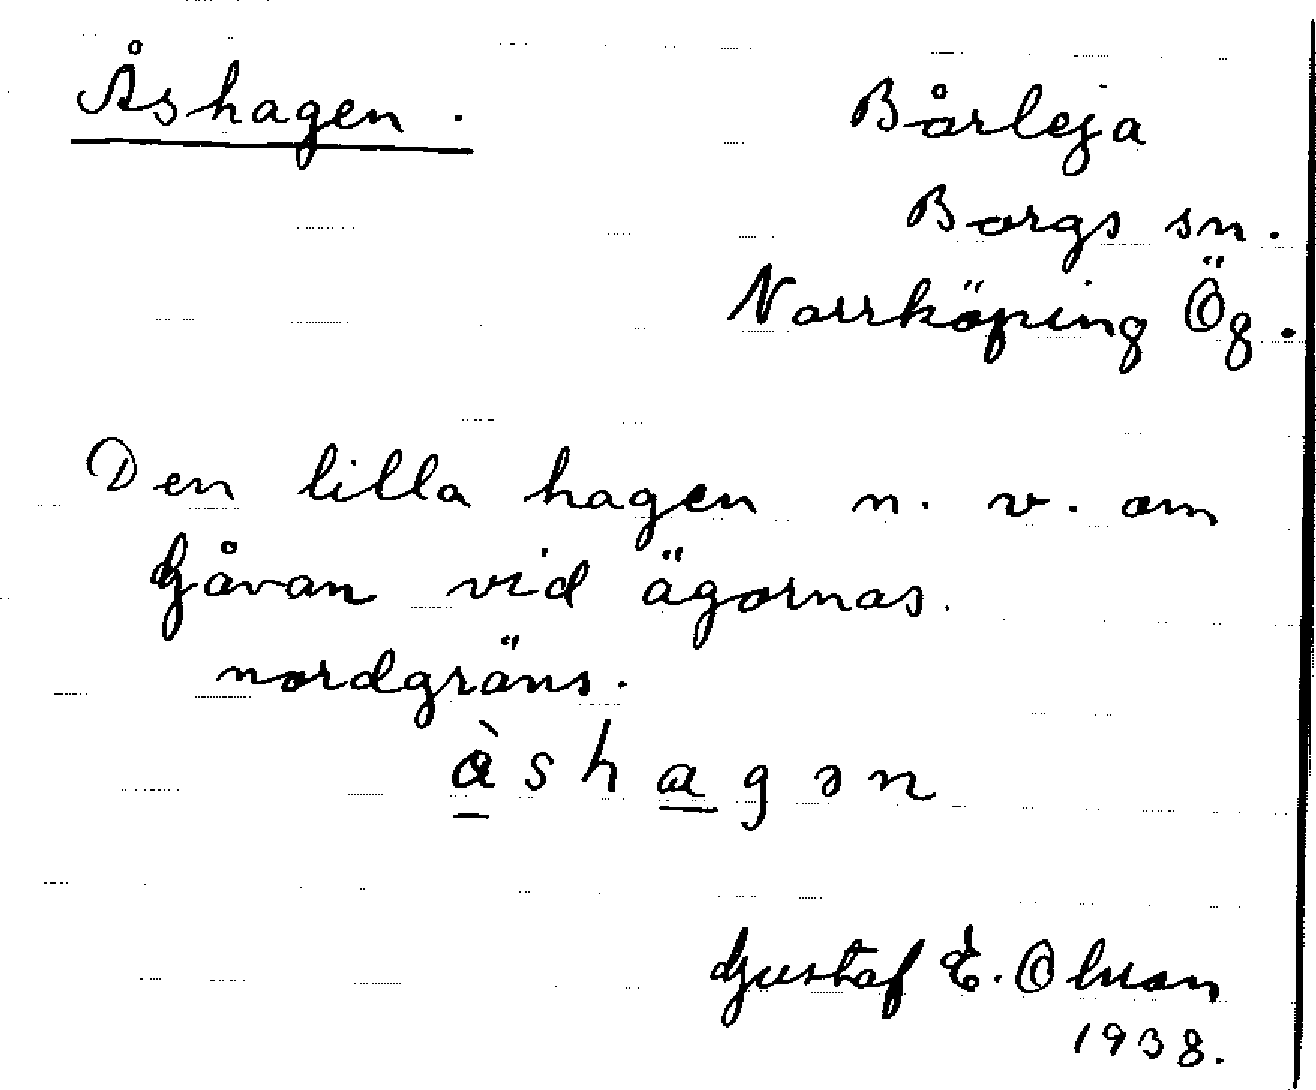 Åshagen.
Bårleja
Borgs sn.
Norrköping Ög.
Den lilla hagen n. v. om
Gåvan vid ägornas.
nordgräns.
ȧ̀shagən
Gustaf E. Olson
1938.